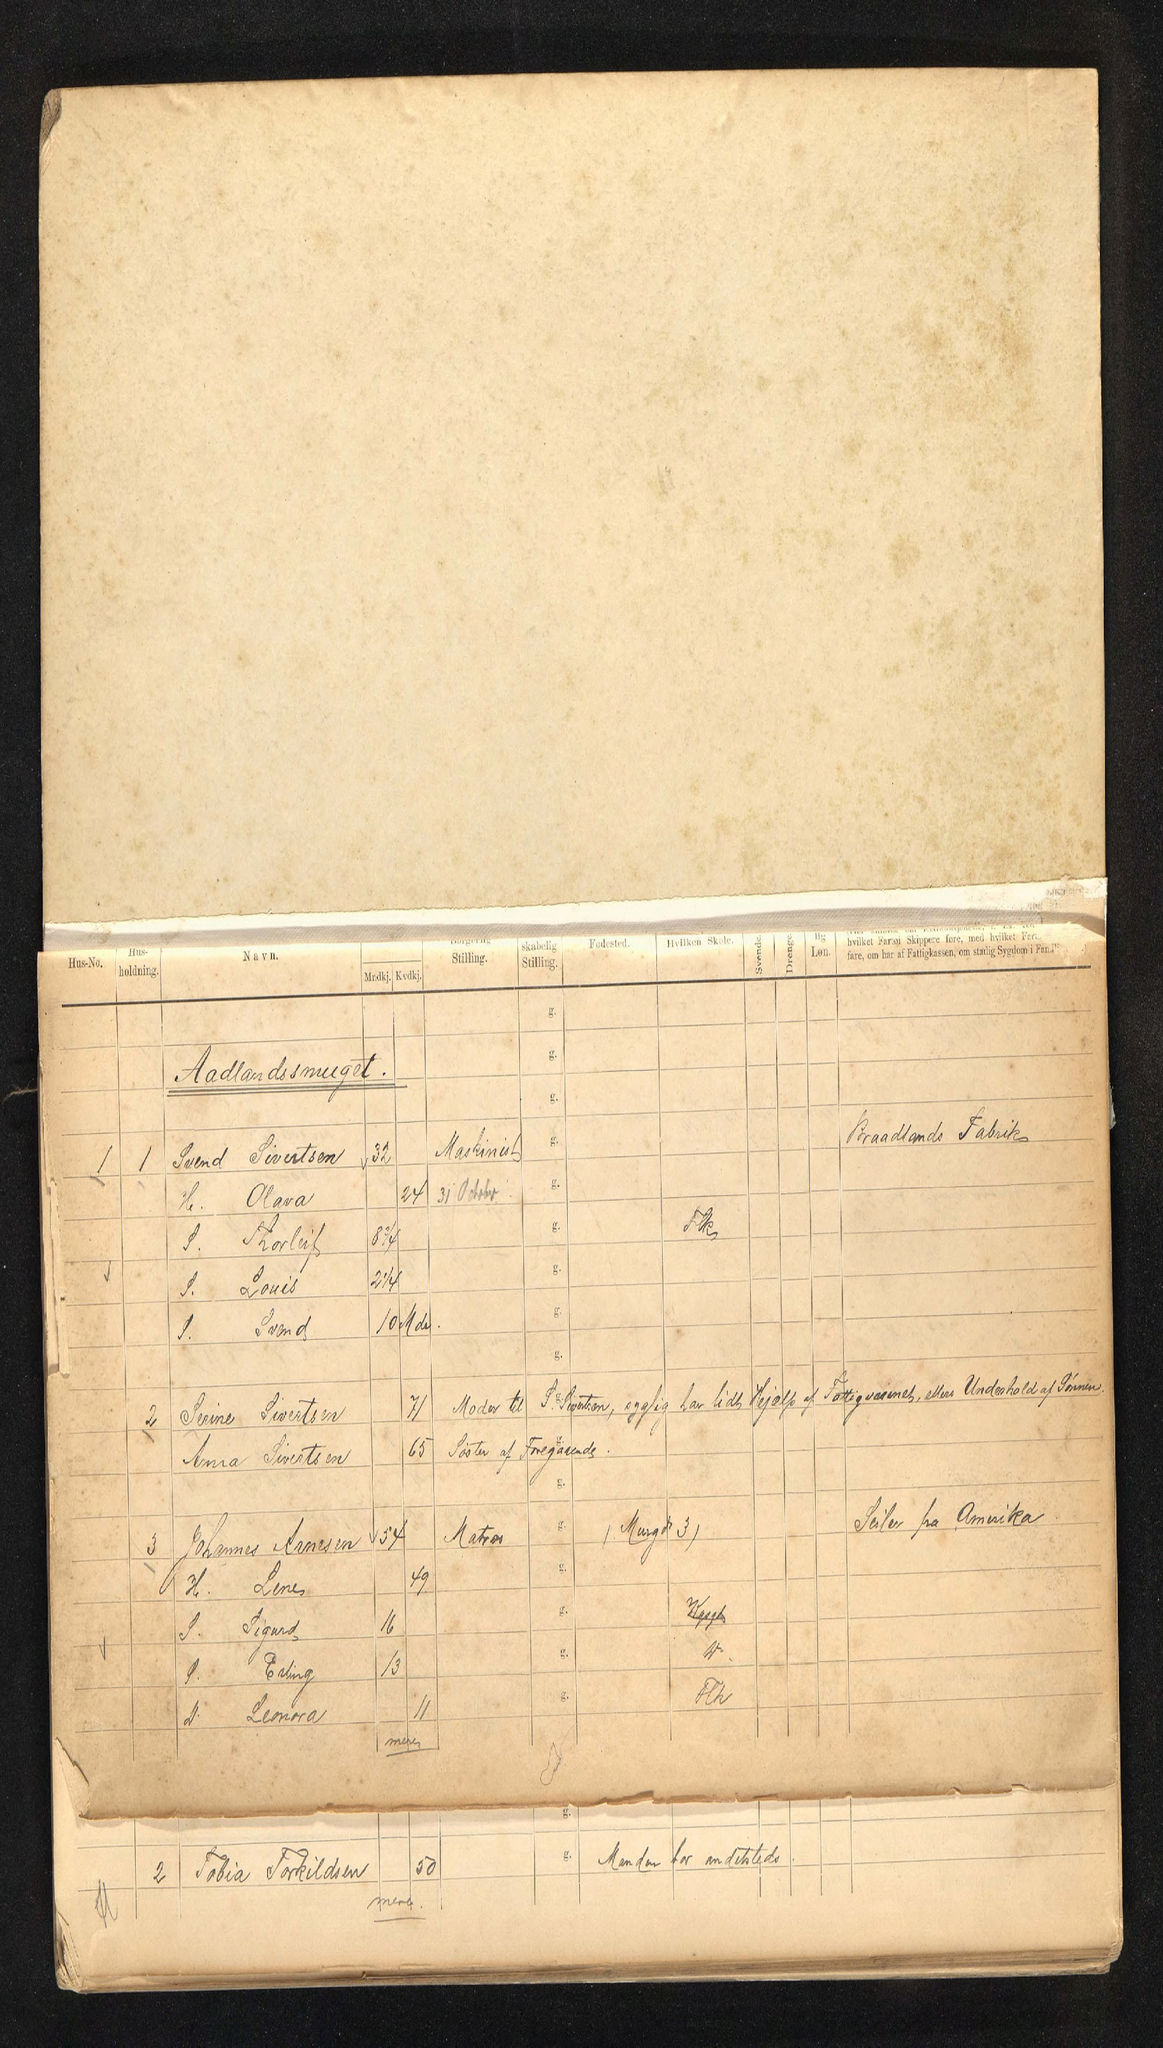 Hus-No. Hus-holdning. Navn. Mndkj. Kvdkj. Stilling. skabelig Stilling. Fødested. Hvilken Skole. Svende. Drenge. Løn. hvilket Fartøi Skippere føre, med hvilket
fare, om har af Fattigkassen, om stadig Sygdom i
g.
g.
Aadlandssmuget.
g.
1 1 Svend Sivertsen 32 Maskinist g. Braadlands Fabrik
H. Olava 24 31 October g.
S. Thorleif 8 3/4 g. Flk
S. Louis 2 1/4 g.
S. Svend 10 Mdr. g.
g.
2 Serine Sivertsen 71 Moder til S. Sivertsen, syglig har lidt Hjælp af Fattigvæsenet, ellers Underhold af Sønnen.
Anna Sivertsen 65 Søster af Foregaaende. g.
g.
3 Johannes Arnesen 54 Matros g. Seiler fra Amerika
H. Lene 49 g.
S. Sigurd 16 g.
S. Erling 13 g.
D. Leonora 11 g.
mere
g.
2 Tobia Torkildsen 50 g. Manden bor andetsteds.
mere.